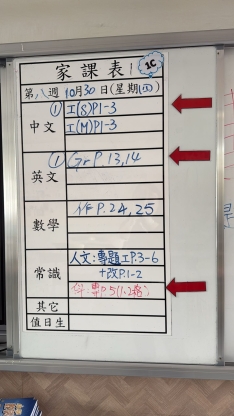 家課表 1C
第八週 10月30日(星期四)
中文 ① 工(S)P1-3
工(M)P1-3
英文 ① Gr P.13,14
數學 NF P.24,25
常識 人文:專題工P.3-6
+改P.1-2
科:專P.5(1-2格)
其它
值日生